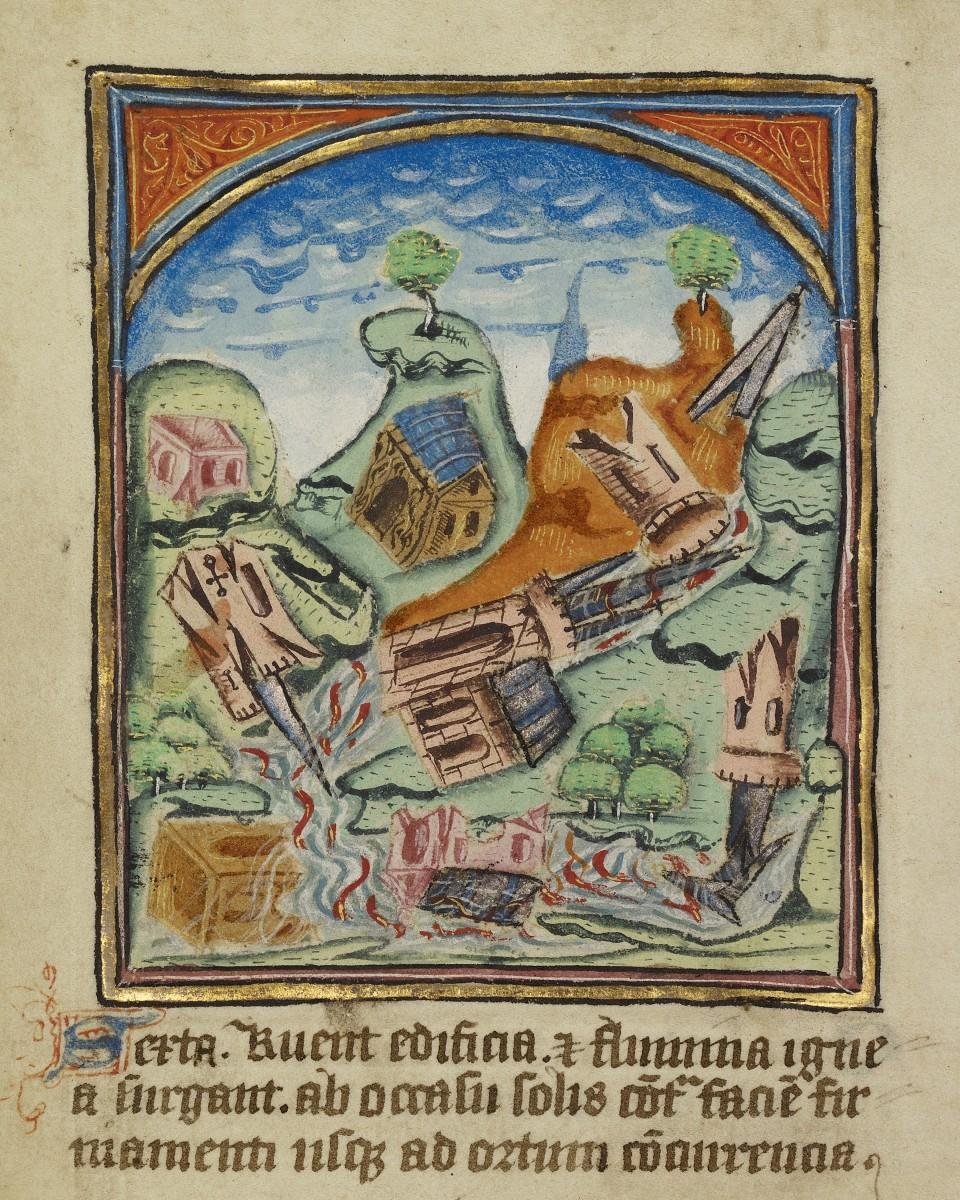 Sexta. Ruent edificia. ⁊ flumina igne
a surgant. ab occasu solis cōt᷑ faciē fir
mamenti usq̢ ad ortum cōcurrencia.